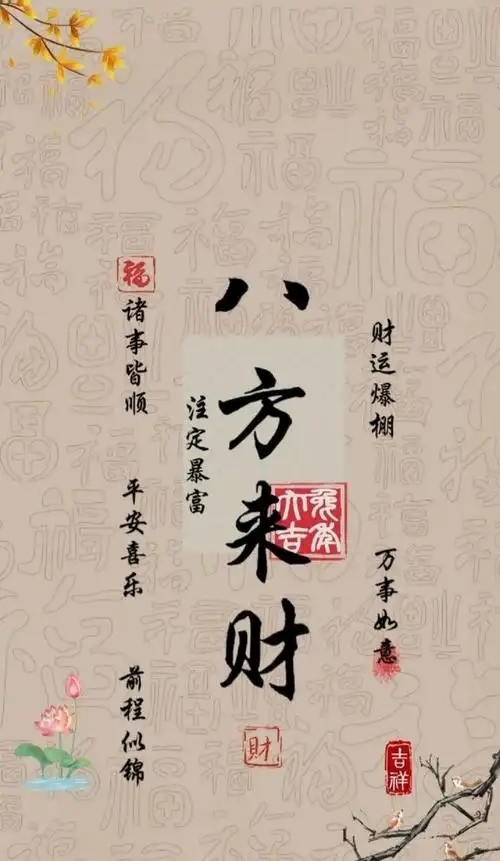 八方来财
注定暴富
财运爆棚
万事如意
福
诸事皆顺
平安喜乐
前程似锦
大吉
財
吉祥